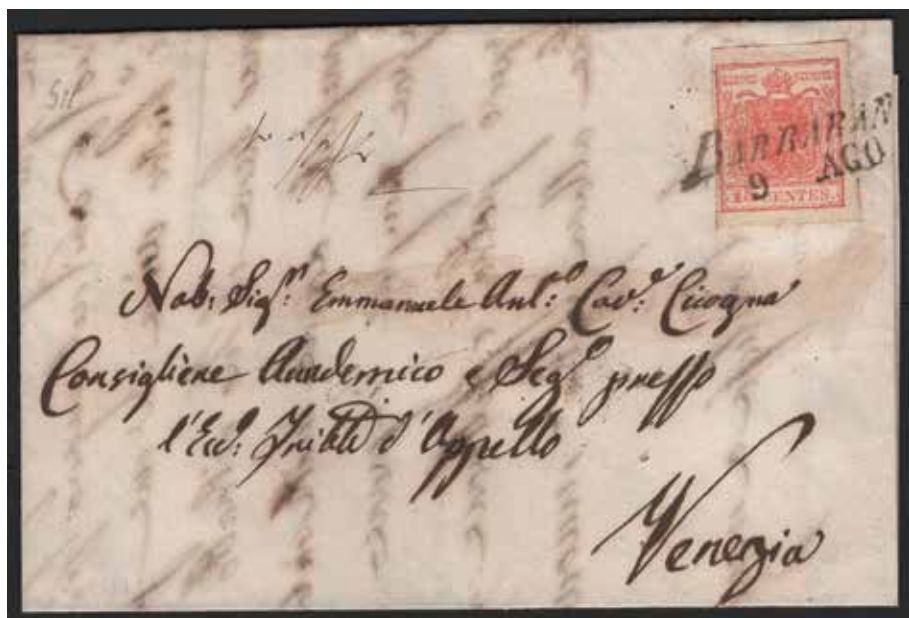 BARBARAN
9 AGO
CENTES.
Nob: Sig.r Emmanuele Ant.o Cav.r Cicogna
Consigliere Accademico e Seg.o presso
l'Ecc.o Trible d'Appello
Venezia